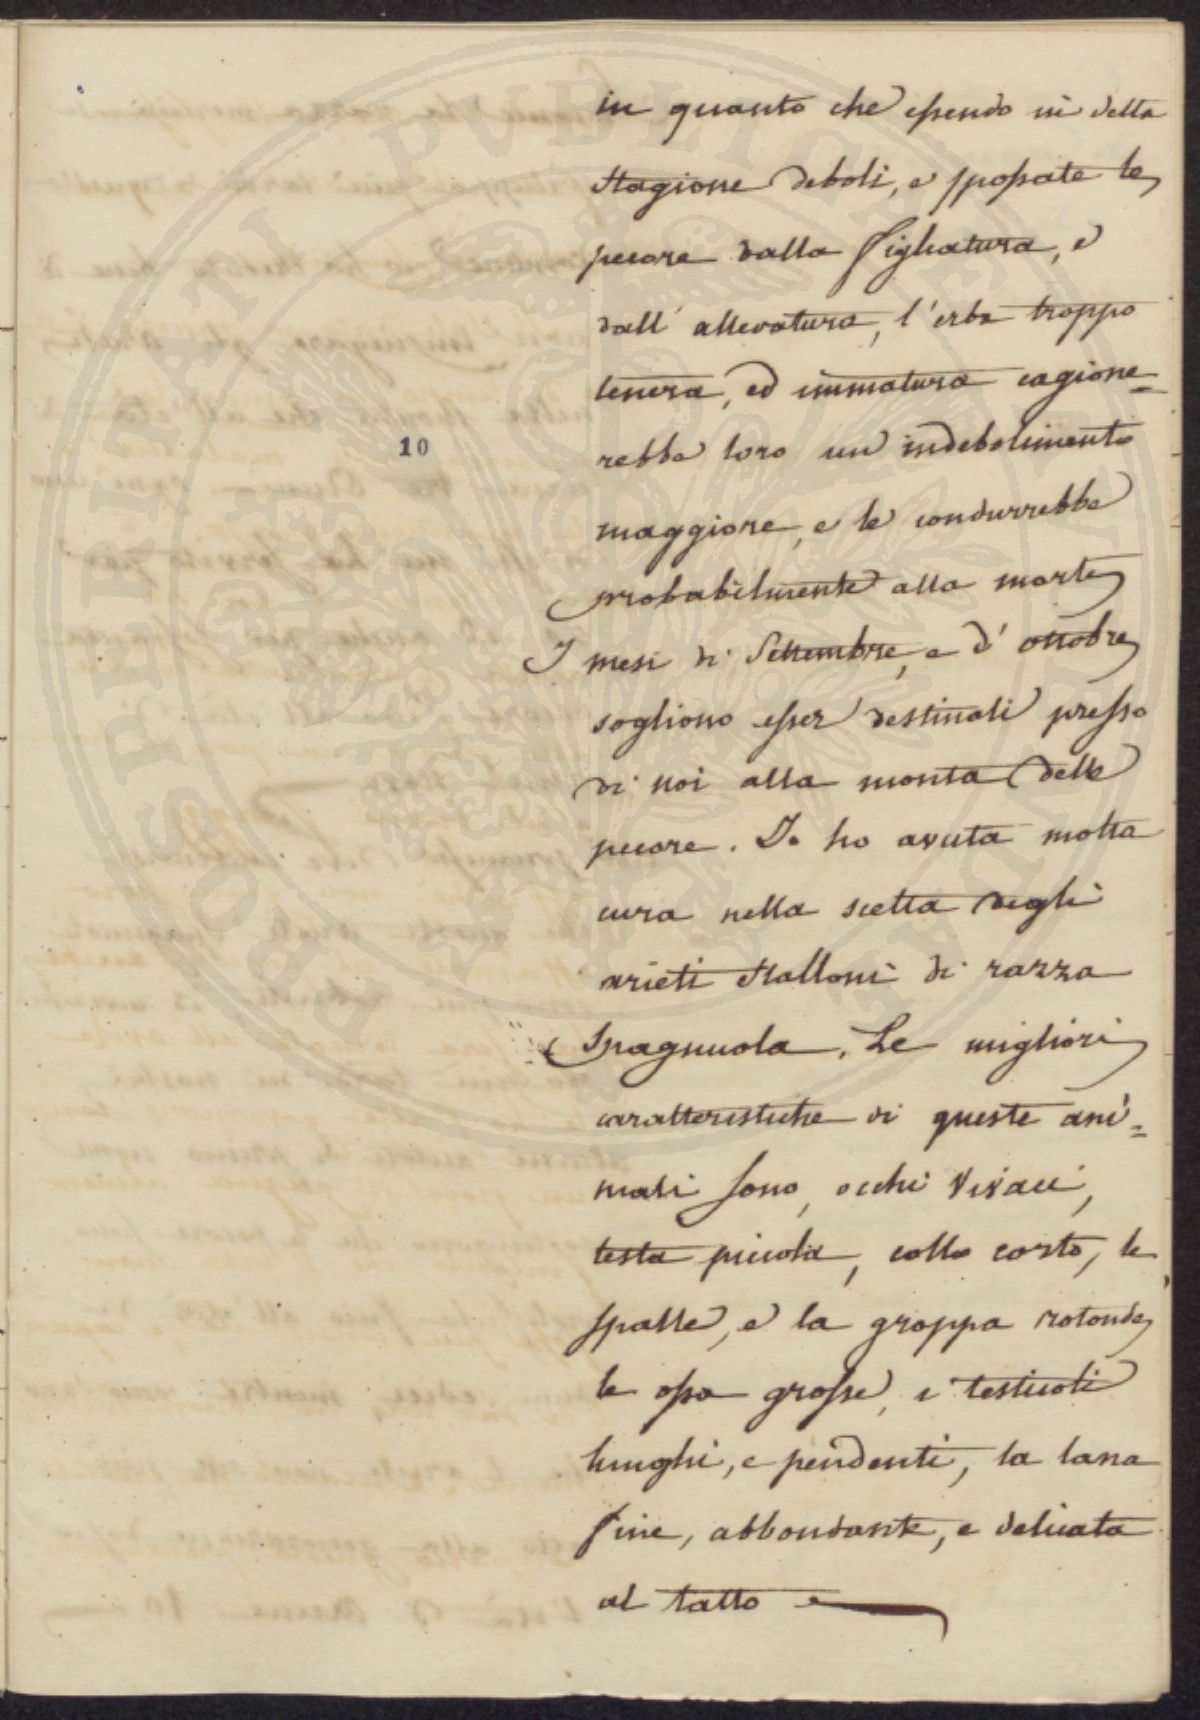 in quanto che essendo in detta
stagione deboli, e spossate le
pecore dalla figliatura, e
dall' allevatura, l'erba troppo
tenera, ed immatura cagione=
rebbe loro un indebolimento
10
maggiore, e le condurrebbe
probabilmente alla morte
I mesi di Settembre, e d' ottobre
sogliono esser destinati presso
di noi alla monta delle
pecore. Io ho avuta molta
cura nella scelta degli
arieti stalloni di razza
Spagnuola. Le migliori
caratteristiche di queste ani=
mali sono, occhi vivaci,
testa piccola, collo corto, le
spalle, e la groppa rotonde,
le ossa grosse, i testicoli
lunghi, e pendenti, la lana
fine, abbondante, e delicata
al tatto
PROSPERITATI PVBLICAE